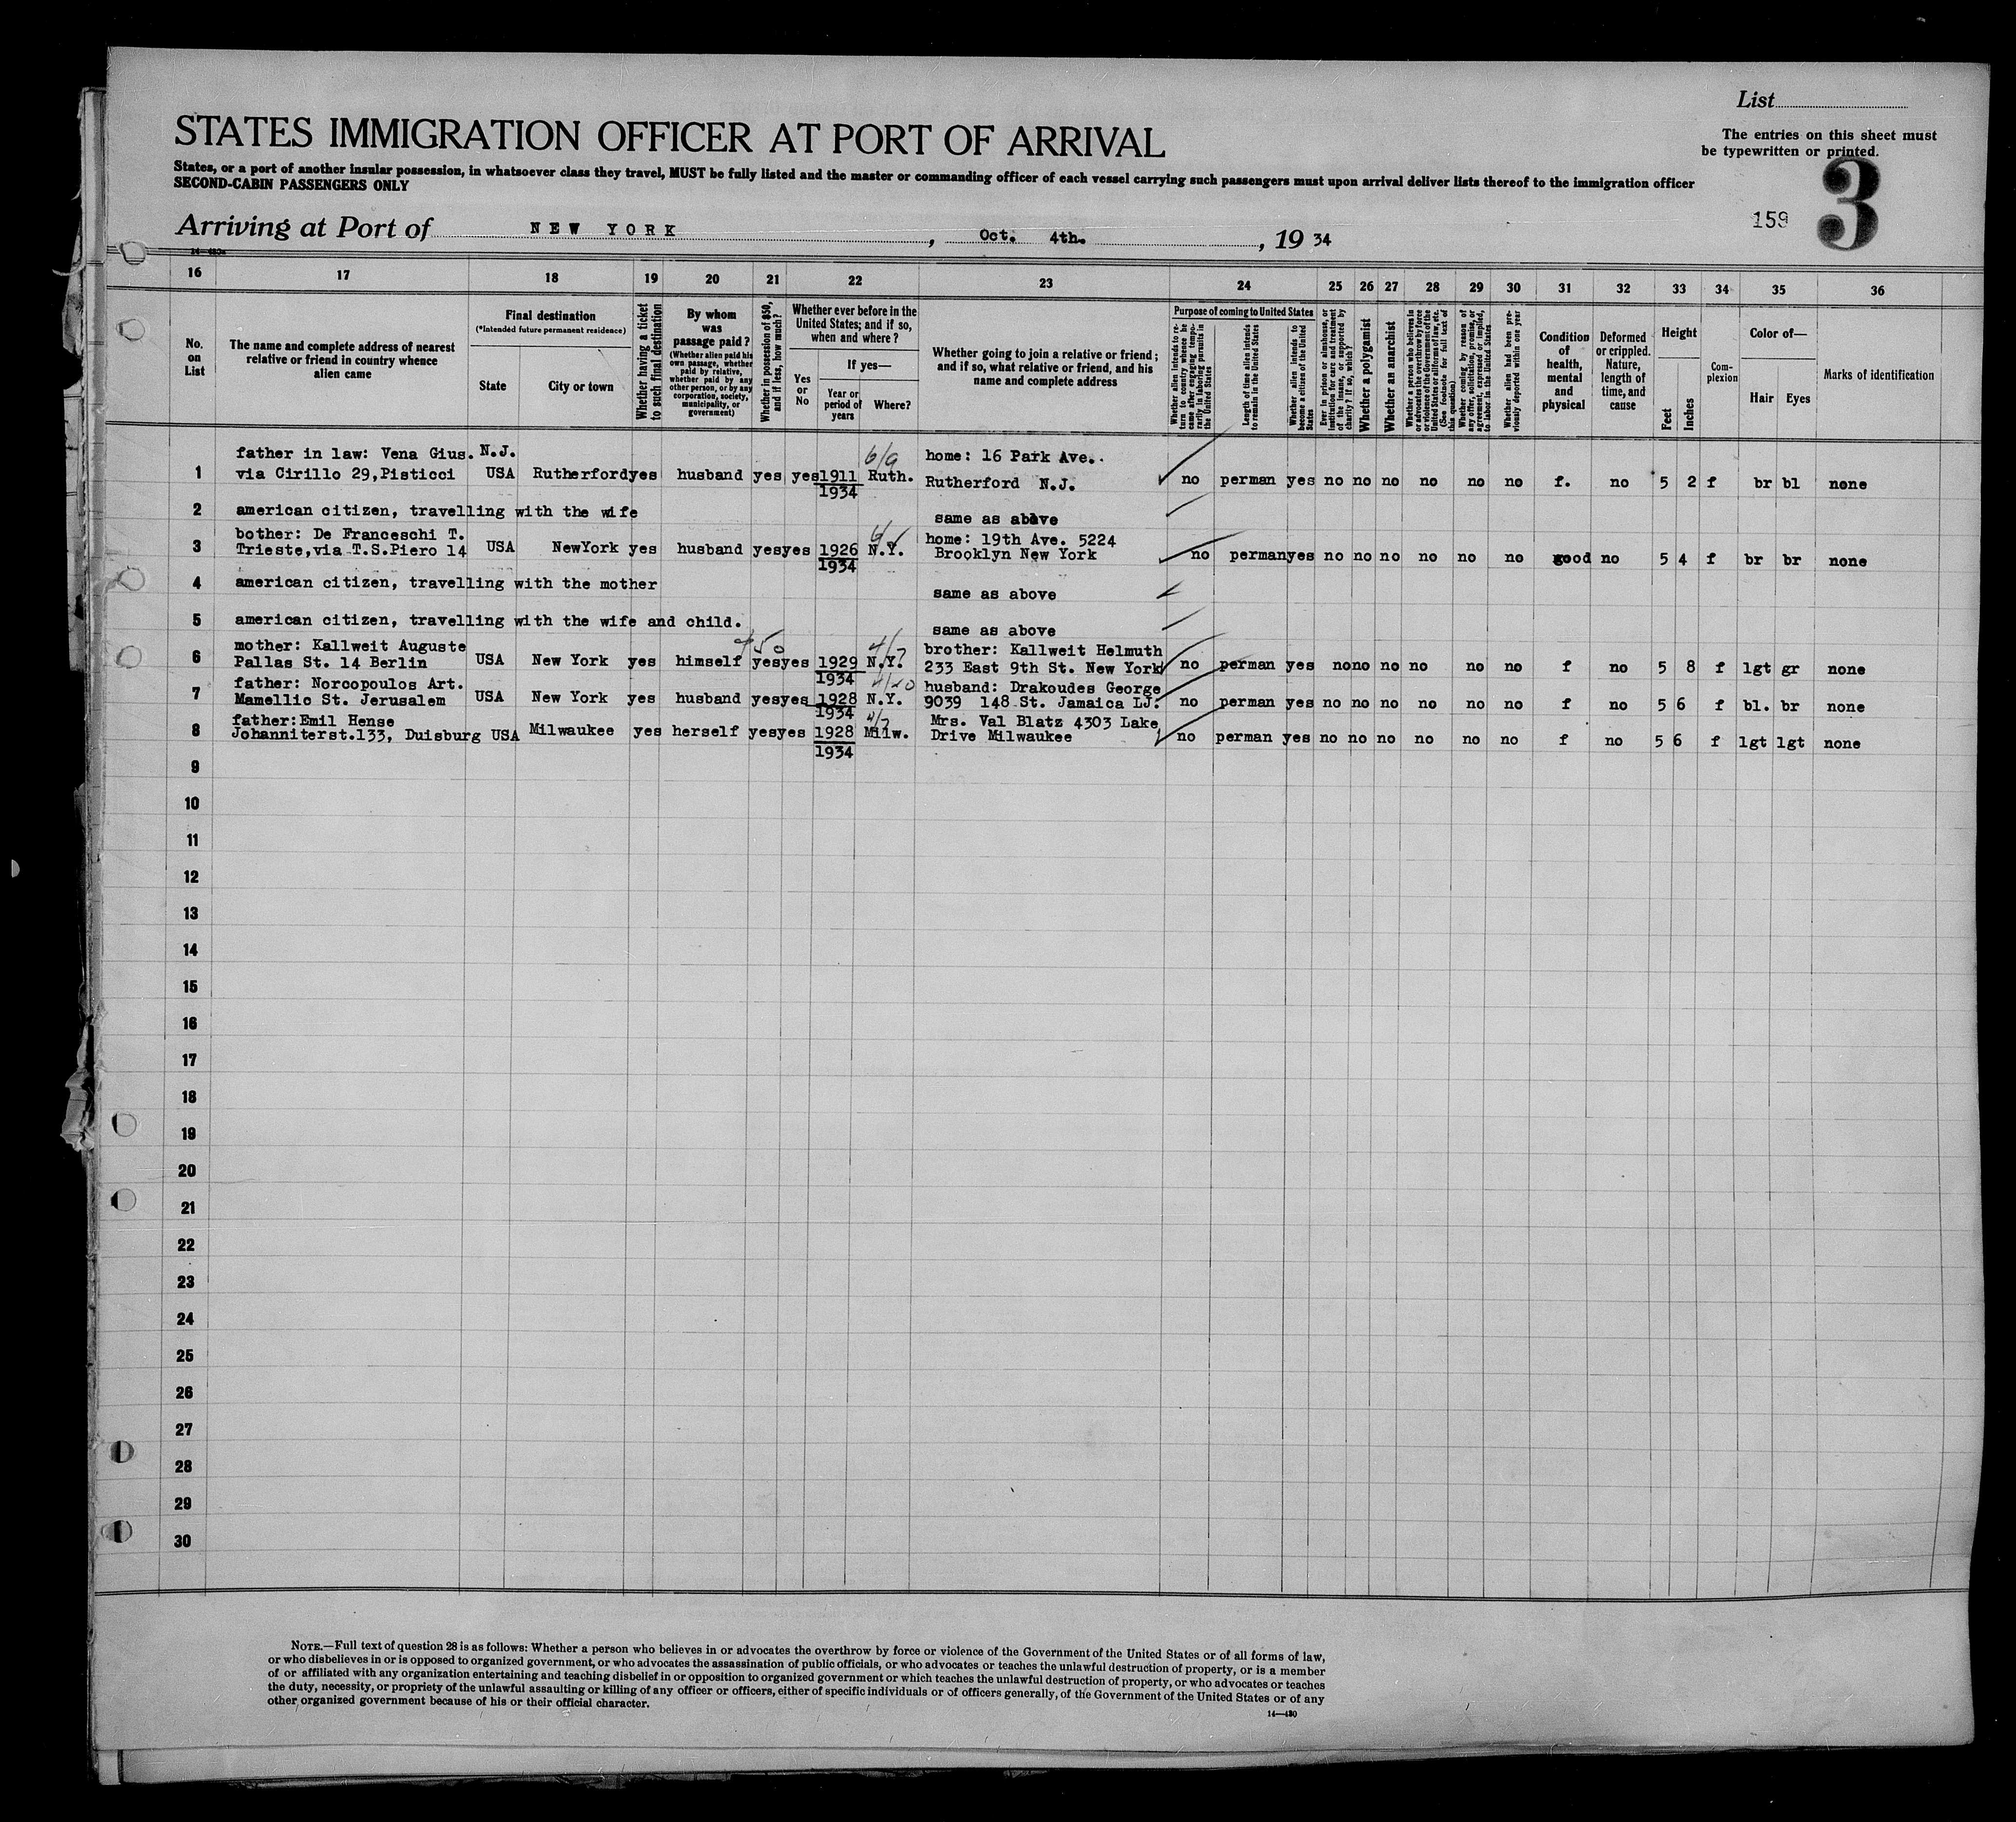 List
STATES IMMIGRATION OFFICER AT PORT OF ARRIVAL
The entries on this sheet must
be typewritten or printed.
States, or a port of another insular possession, in whatsoever class they travel, MUST be fully listed and the master or commanding officer of each vessel carrying such passengers must upon arrival deliver lists thereof to the immigration officer
SECOND-CABIN PASSENGERS ONLY
159 3
Arriving at Port of NEW YORK, Oct. 4th., 1934
16 17 18 19 20 21 22 23 24 25 26 27 28 29 30 31 32 33 34 35 36
No. on List
The name and complete address of nearest relative or friend in country whence alien came
Final destination
(*Intended future permanent residence)
State
City or town
Whether having a ticket to such final destination
By whom was passage paid?
(Whether alien paid his own passage, whether paid by relative, whether paid by any other person, or by any corporation, society, municipality, or government)
Whether in possession of $50, and if less, how much?
Whether ever before in the United States; and if so, when and where?
Yes or No
If yes—
Year or period of years
Where?
Whether going to join a relative or friend; and if so, what relative or friend, and his name and complete address
Purpose of coming to United States
Whether alien intends to return to country whence he came after engaging temporarily in laboring pursuits in the United States
Length of time alien intends to remain in the United States
Whether alien intends to become a citizen of the United States
Ever in prison or almshouse, or institution for care and treatment of the insane, or supported by charity? If so, which?
Whether a polygamist
Whether an anarchist
Whether a person who believes in or advocates the overthrow by force or violence of the Government of the United States or all forms of law, etc. (See footnote for full text of this question)
Whether coming by reason of any offer, solicitation, promise, or agreement, expressed or implied, to labor in the United States
Whether alien had been previously deported within one year
Condition of health, mental and physical
Deformed or crippled. Nature, length of time, and cause
Height
Feet
Inches
Complexion
Color of—
Hair
Eyes
Marks of identification
father in law: Vena Gius. N.J. 6/9 home: 16 Park Ave.
1 via Cirillo 29,Pisticci USA Rutherford yes husband yes yes 1911 Ruth. Rutherford N.J. no perman yes no no no no no no f. no 5 2 f br bl none
1934
2 american citizen, travelling with the wife same as above
bother: De Franceschi T. home: 19th Ave. 5224
3 Trieste,via T.S.Piero 14 USA NewYork yes husband yes yes 1926 N.Y. Brooklyn New York no perman yes no no no no no no good no 5 4 f br br none
1934
4 american citizen, travelling with the mother same as above
5 american citizen, travelling with the wife and child. same as above
mother: Kallweit Auguste 50 4/7 brother: Kallweit Helmuth
6 Pallas St. 14 Berlin USA New York yes himself yes yes 1929 N.Y. 233 East 9th St. New York no perman yes no no no no no no f no 5 8 f lgt gr none
1934
father: Norcopoulos Art. husband: Drakoudes George
7 Mamellic St. Jerusalem USA New York yes husband yes yes 1928 N.Y. 9039 148 St. Jamaica LJ. no perman yes no no no no no no f no 5 6 f bl. br none
1934
father:Emil Hense 4/7 Mrs. Val Blatz 4303 Lake
8 Johanniterst.133, Duisburg USA Milwaukee yes herself yes yes 1928 Milw. Drive Milwaukee no perman yes no no no no no no f no 5 6 f lgt lgt none
1934
9
10
11
12
13
14
15
16
17
18
19
20
21
22
23
24
25
26
27
28
29
30
NOTE.—Full text of question 28 is as follows: Whether a person who believes in or advocates the overthrow by force or violence of the Government of the United States or of all forms of law,
or who disbelieves in or is opposed to organized government, or who advocates the assassination of public officials, or who advocates or teaches the unlawful destruction of property, or is a member
of or affiliated with any organization entertaining and teaching disbelief in or opposition to organized government or which teaches the unlawful destruction of property, or who advocates or teaches
the duty, necessity, or propriety of the unlawful assaulting or killing of any officer or officers, either of specific individuals or of officers generally, of the Government of the United States or of any
other organized government because of his or their official character.
14—430